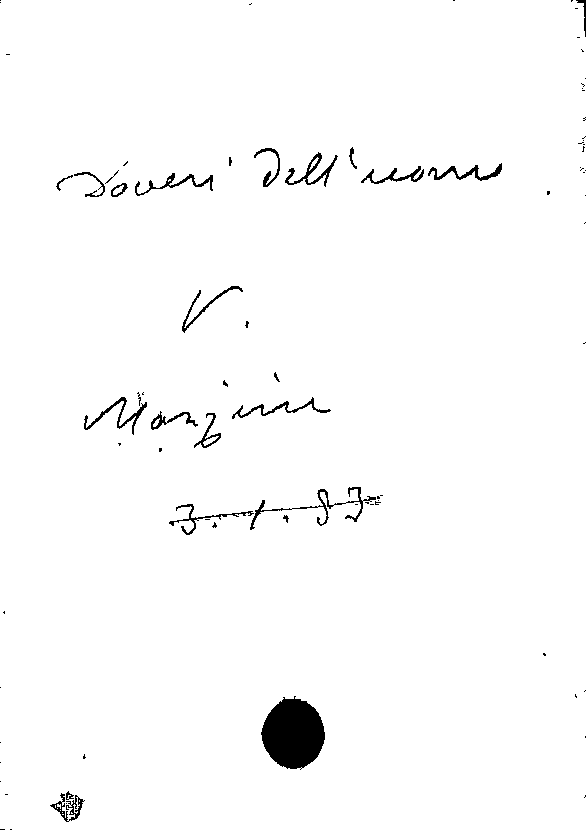 Doveri dell'uomo
V.
Mazzini
3.1.83